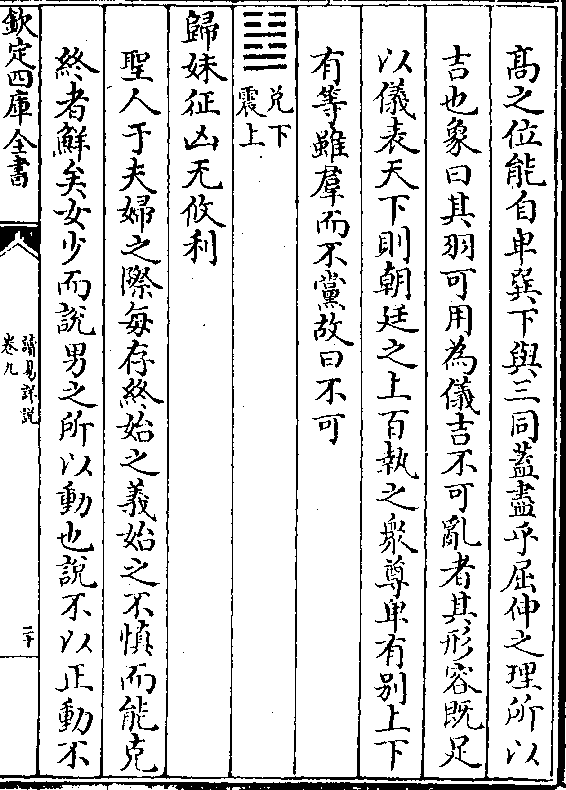 高之位能自卑巽下與三同葢盡乎屈伸之理所以
吉也象曰其羽可用為儀吉不可亂者其形容既足
以儀表天下則朝廷之上百執之衆尊卑有别上下
有等雖羣而不黨故曰不可
兑下
震上
歸妹征凶无攸利
聖人于夫婦之際每存終始之義始之不慎而能克
終者鮮矣女少而說男之所以動也說不以正動不
欽定四庫全書
讀易詳說
卷九
二十